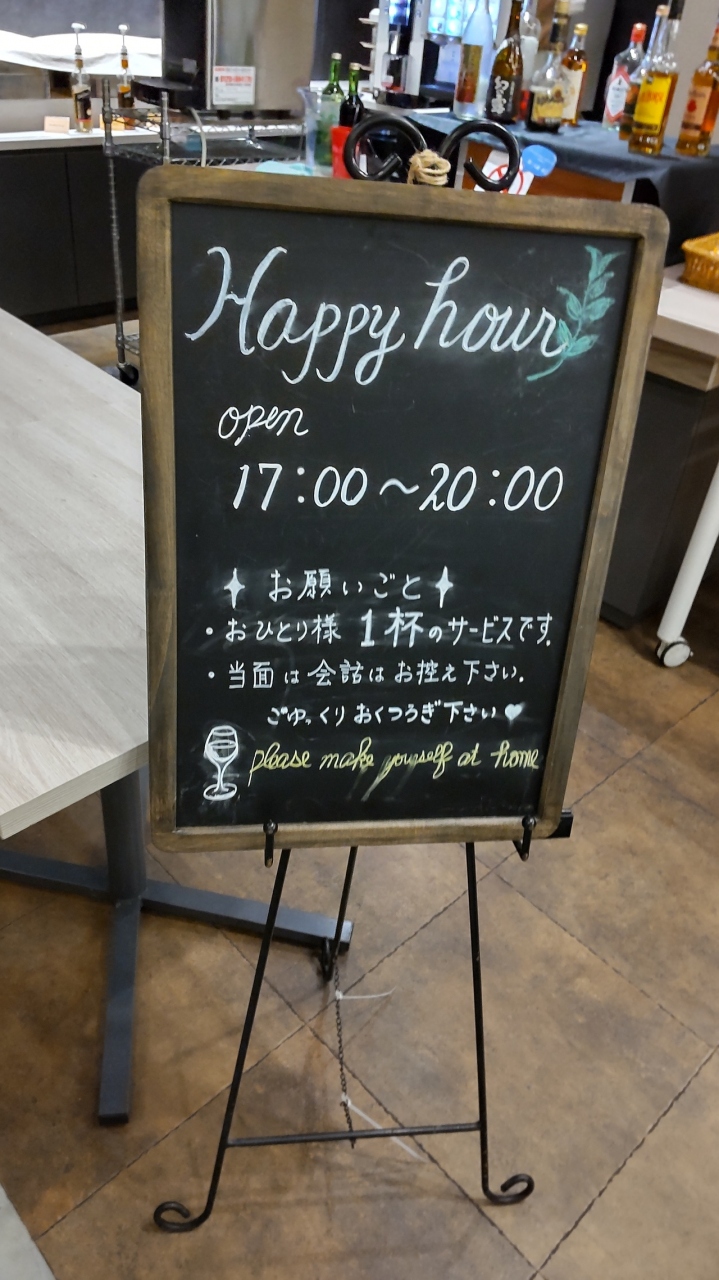 Happy hour
open
17:00~20:00
お願いごと
・おひとり様 1杯のサービスです。
・当面は会話はお控え下さい。
ごゆっくりおくつろぎ下さい♥
please make yourself at home